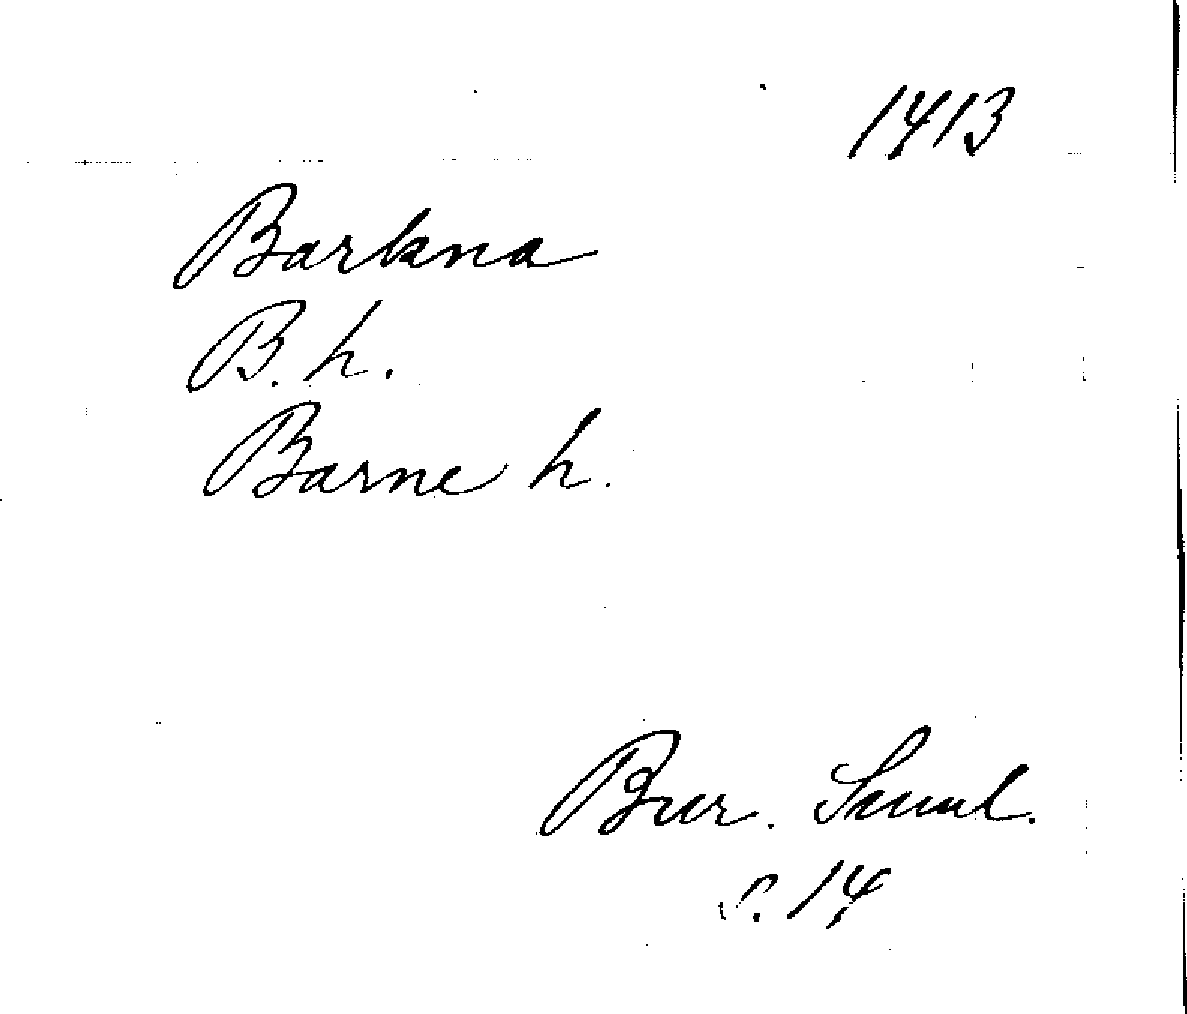 1413
Barkna
B. h.
Barne h.
Bur. Saml.
s. 14